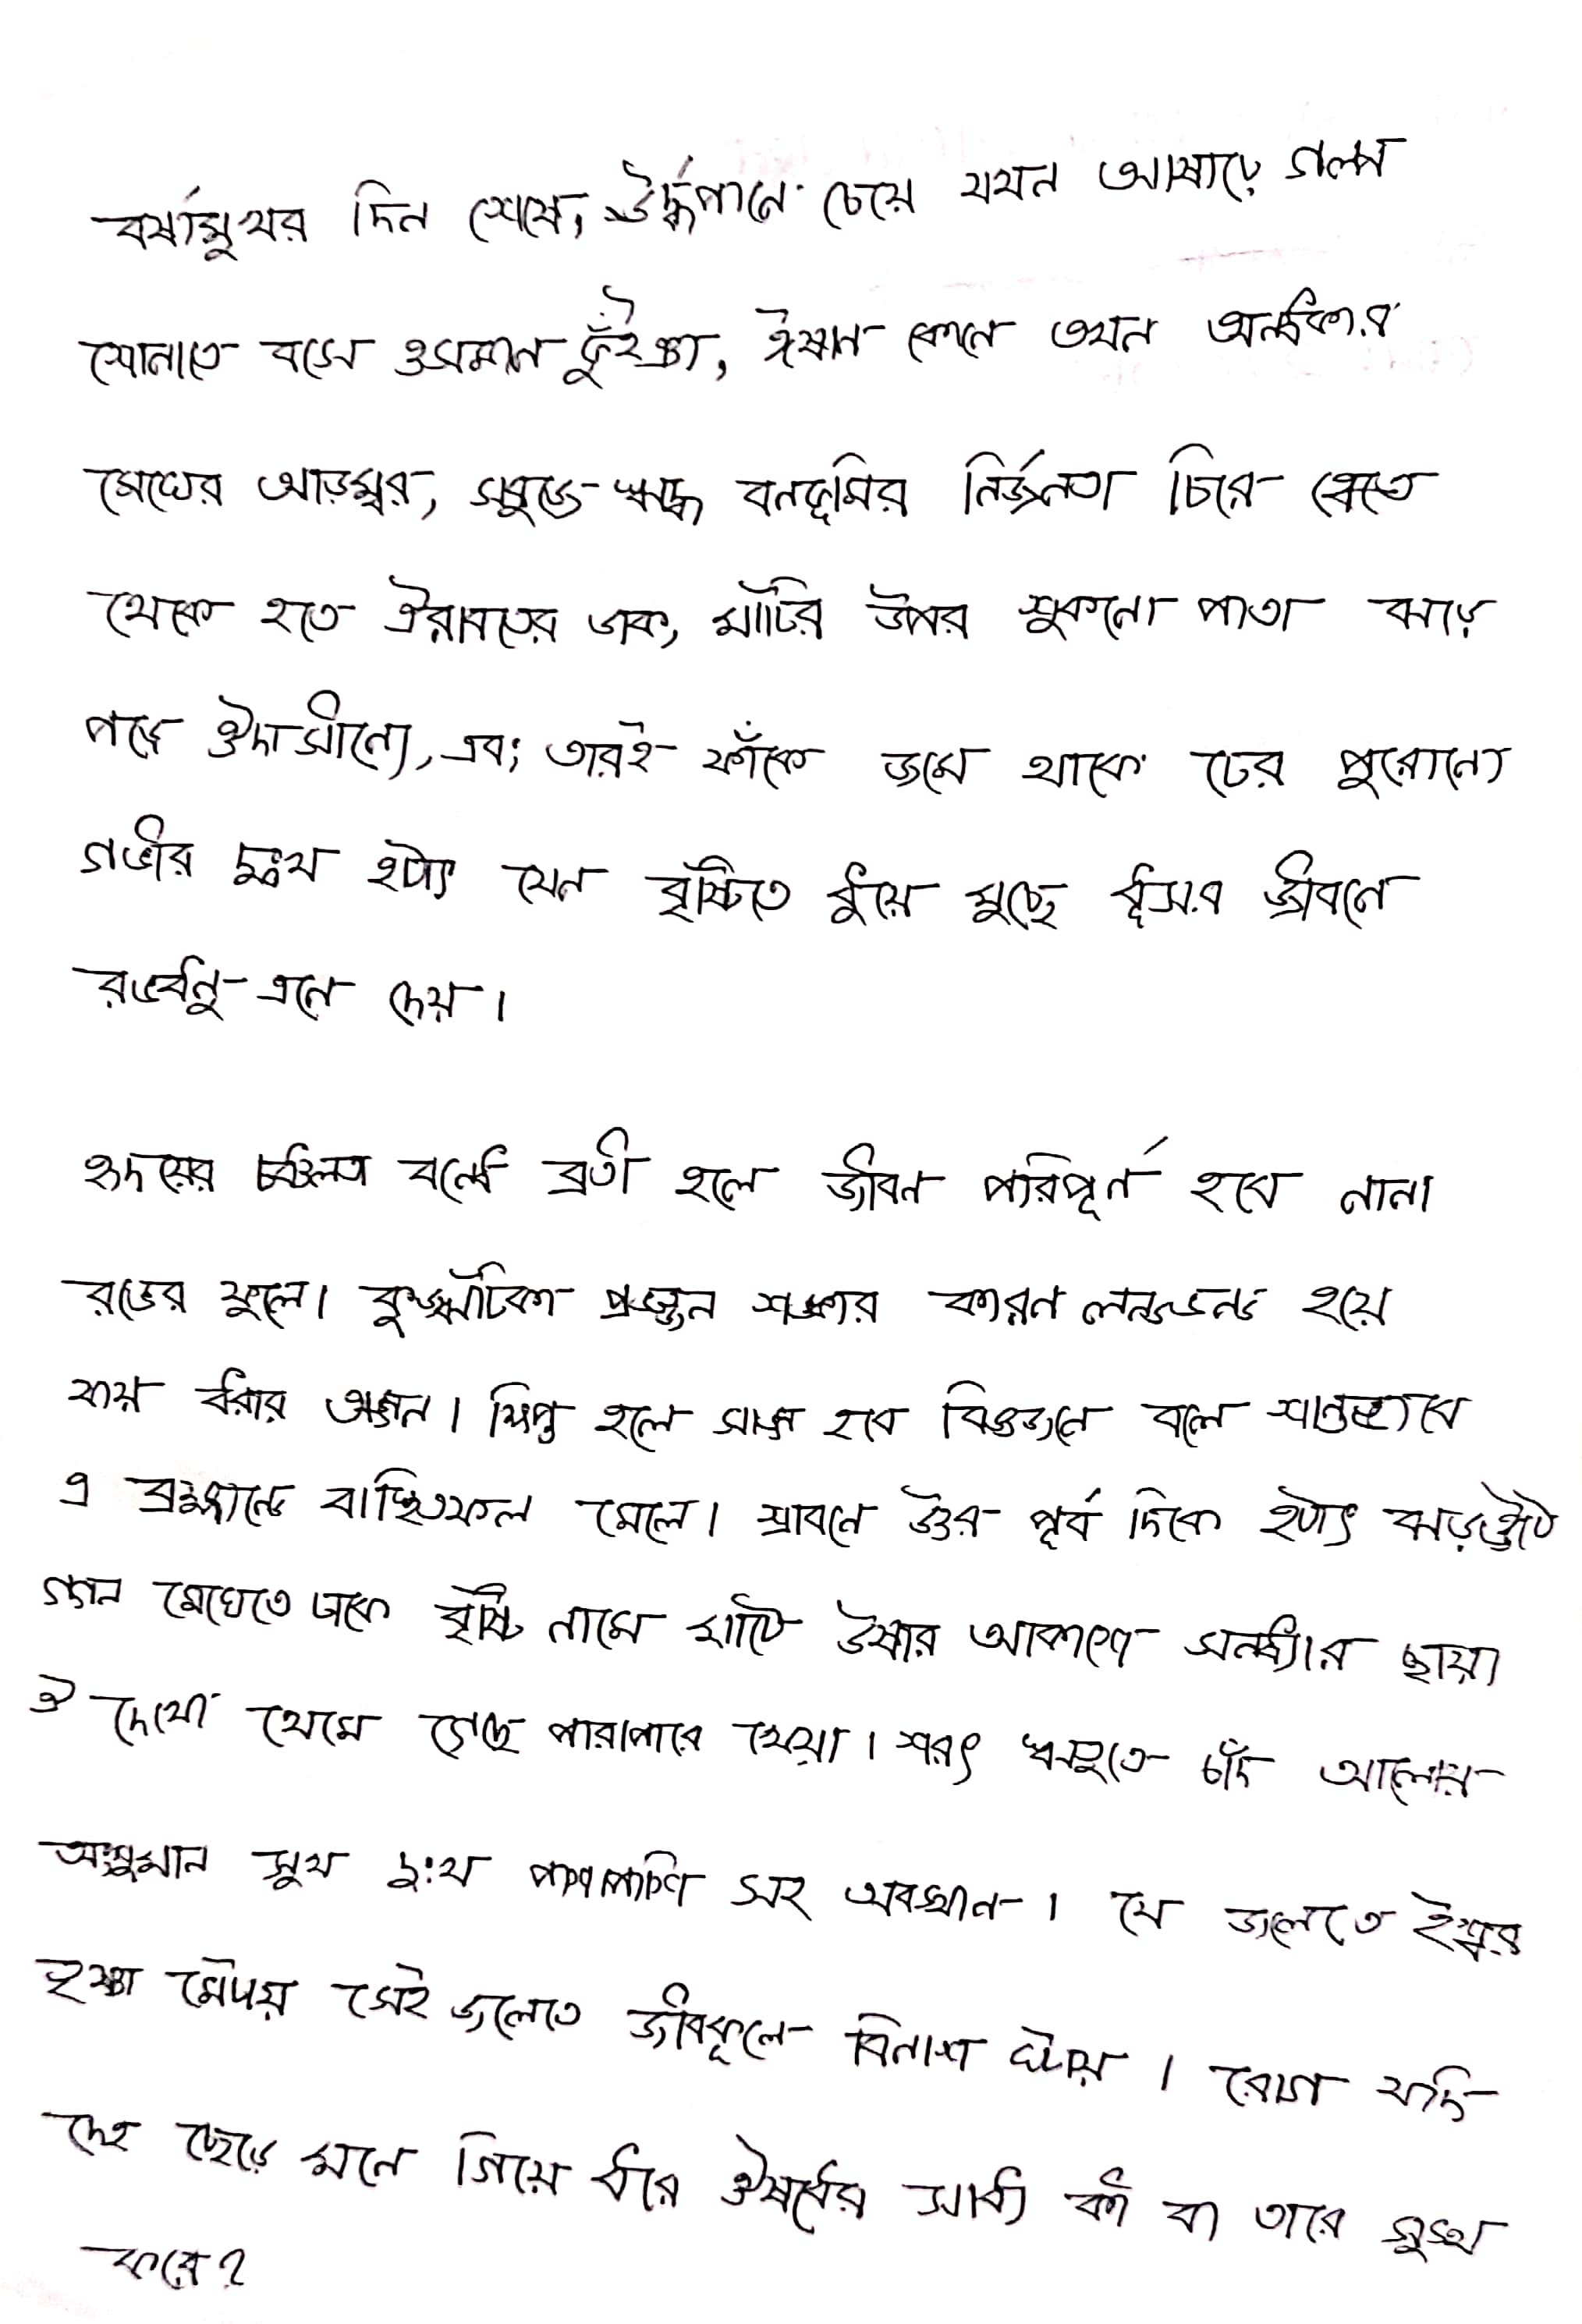 বর্ষামুখর দিন শেষে, ঊর্দ্ধপানে চেয়ে যখন আষাঢ়ে গল্প
শোনাতে বসে ওসমান ভুঁইঞা, ঈষান কোনে তখন অন্ধকার
মেঘের আড়ম্বর, সবুজে ঋদ্ধ বনভূমির নির্জনতা চিরে থেকে
থেকে হতে ঐরাবতের ডাক, মাটির উপর শুকনো পাতা ঝড়ে
পড়ে ঔদাসীন্যে, এবং তারই ফাঁকে জমে থাকে ঢের পুরোনো
গভীর দুঃখ হঠাৎ যেন বৃষ্টিতে ধুঁয়ে মুছে ধূসর জীবনে
রঙধনু এনে দেয়।
হৃদয়ের চঞ্চলতা বন্ধে ব্রতী হলে জীবন পরিপূর্ণ হবে নানা
রঙের ফুলে। কুঞ্ঝটিকা প্রভঞ্জন শঙ্কার কারন লন্ডভন্ড হয়ে
যায় ধরার অঙ্গন। ক্ষিপ্ত হলে সাঙ্গ হবে বিজ্ঞজনে বলে শান্তভাবে
এ ব্রহ্মান্ডে বাঞ্ছিতফল মেলে। শ্রাবনে উত্তর পূর্ব দিকে হঠাৎ ঝড় উঠে
গগন মেঘেতে ঢাকে বৃষ্টি নামে মাঠে ঊষার আকাশে সন্ধ্যার ছায়া
ঐ দেখো থেমে গেছে পারাপারে খেয়া। শরৎ ঋতুতে চাঁদ আলোয়
অংশুমান সুখ দুঃখ পাশাপাশি সহ অবস্থান। যে জলেতে ঈশ্বর
তৃষ্ণা মেটায় সেই জলেতে জীবকূলে বিনাশ ঘটায়। রোগ যদি
দেহ ছেড়ে মনে গিয়ে ধরে ঔষধের সাধ্য কী বা তারে সুস্থ
করে?